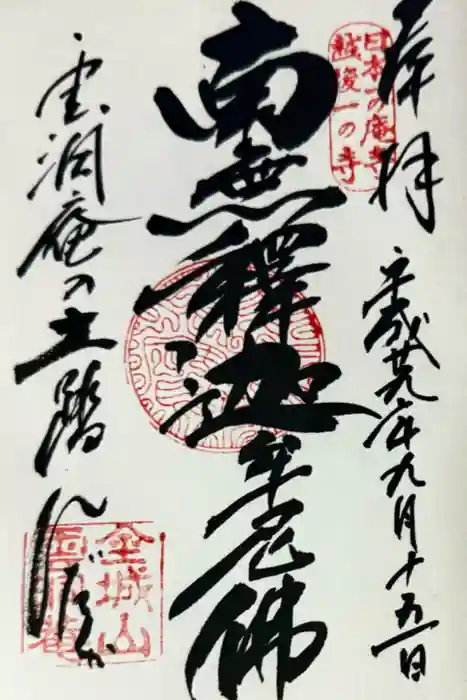 奉拝
日本一の庵寺
越後一の寺
平成廿九年九月十五日
南無釋迦牟尼佛
雲洞庵の土踏んだか
金城山
雲洞菴